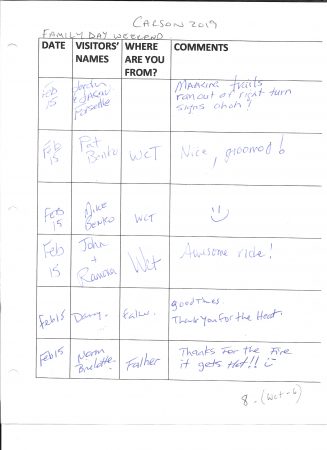 CARSON 2019
FAMILY DAY WEEKEND
DATE VISITORS' NAMES WHERE ARE YOU FROM? COMMENTS
Feb 15 Jordin & Forselle Marking trails ran out of right turn signs ahah!
Feb 15 Pat Benko WCT Nice, groomed!
Feb 15 Mike Benko WCT
Feb 15 John + Ramona Wct Awesome ride!
Feb 15 Danny. Falh. good times
Thank you For the Heat.
Feb 15 Norm Falher Thanks For the Fire
it gets Hot!!
8 - (Wct - 6)